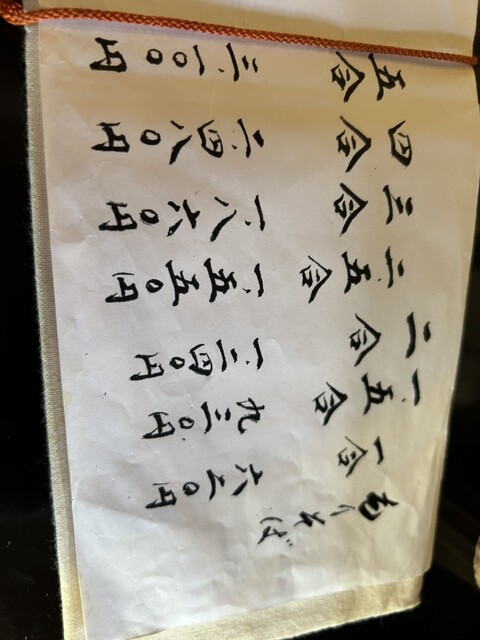 もりそば
一合 六二〇円
一五合 九三〇円
二合 一二四〇円
二五合 一五五〇円
三合 一八六〇円
四合 二四八〇円
五合 三一〇〇円